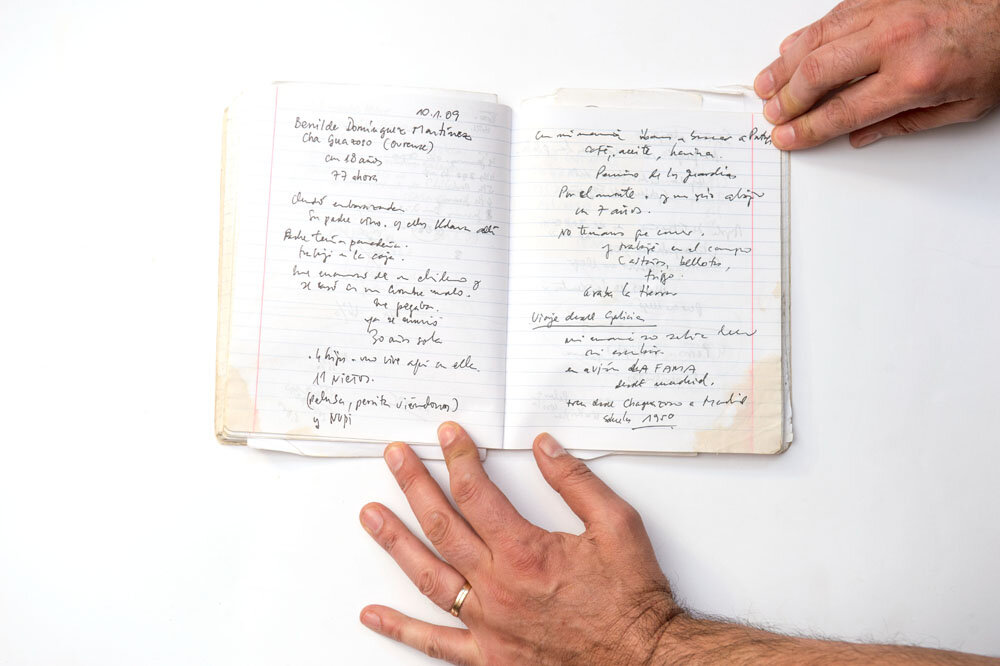 10.1.09
Benilde Domínguez Martínez
Cha guazoso (Ourense)
con 18 años
77 ahora
embarazada
Su padre vino. y ellos
Padre tenía panadería.
trabajé a la caja.
me enamoré de un chileno y
se casó con un hombre malo.
me pegaba.
ya se murió
30 años sola
. 4 hijos. uno vive aquí con ella.
11 Nietos.
(pelusa, perrita viéndonos)
y Nupi
Con mi mamá íbamos a buscar a
café, aceite, harina.
de los guardias
Por el monte. y un río abajo
con 7 años.
No teníamos que comer.
y trabajé en el campo
Castañas, bellotas,
trigo.
araba la tierra
Viaje desde Galicia
mi mamá no sabía leer
ni escribir.
en avión de LA FAMA
desde madrid.
tren desde Chaguazoso a Madrid
1950